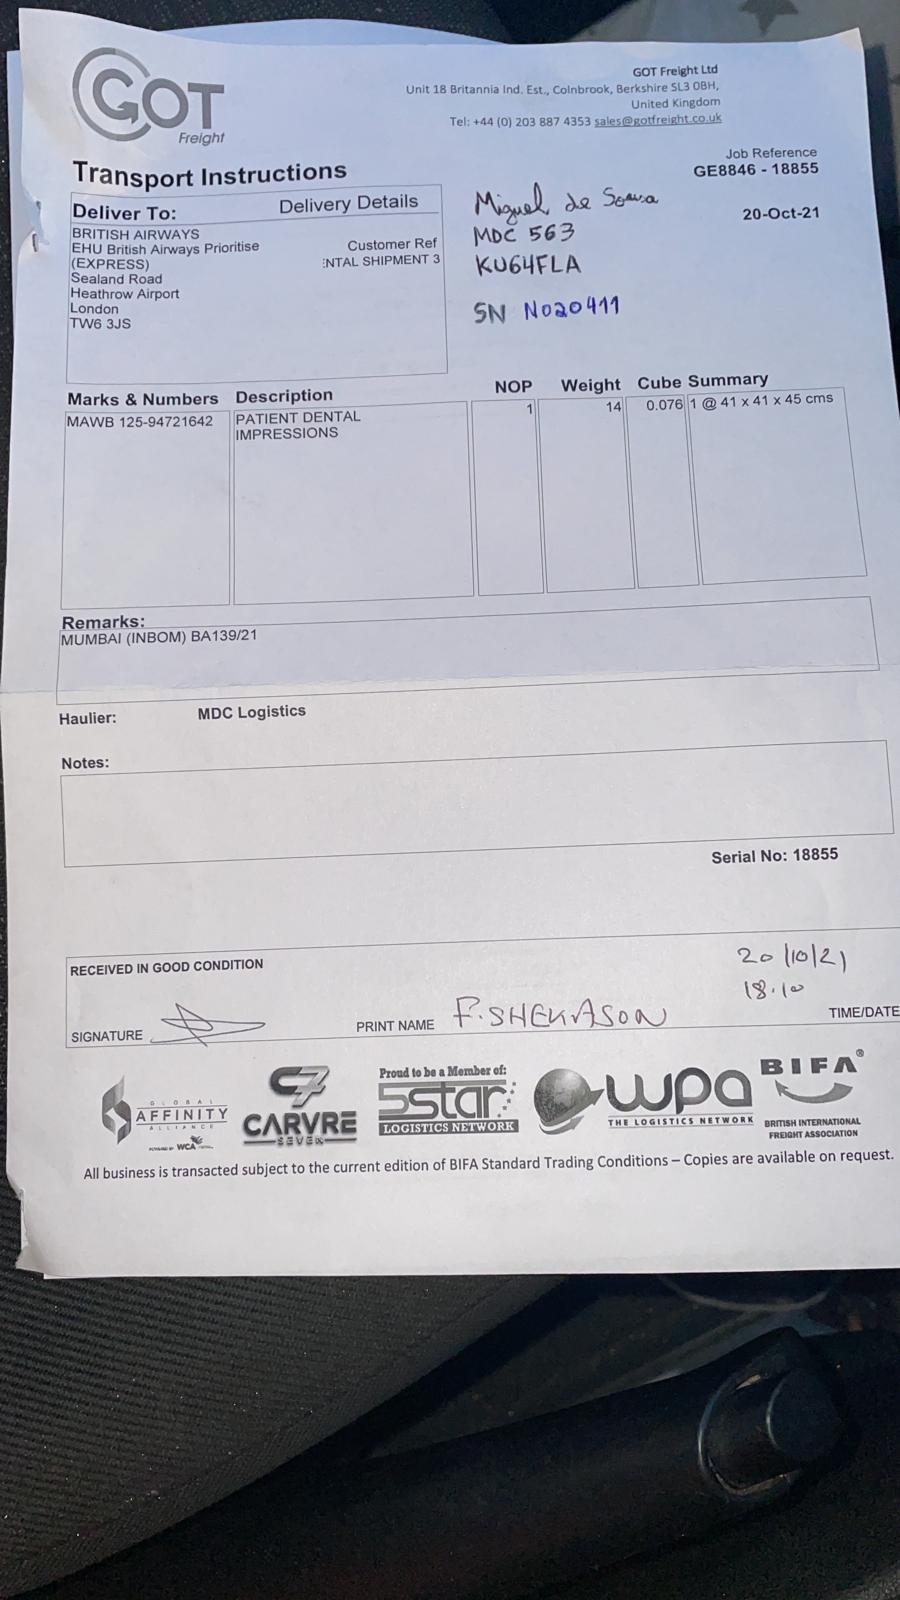 GOT
Freight
GOT Freight Ltd
Unit 18 Britannia Ind. Est., Colnbrook, Berkshire SL3 0BH,
United Kingdom
Tel: +44 (0) 203 887 4353 sales@gotfreight.co.uk
Transport Instructions
Job Reference
GE8846 - 18855
20-Oct-21
Deliver To:
Delivery Details
BRITISH AIRWAYS
EHU British Airways Prioritise
(EXPRESS)
Sealand Road
Heathrow Airport
London
TW6 3JS
Customer Ref
:NTAL SHIPMENT 3
Miguel de Sousa
MDC 563
KU64FLA
SN N020411
Marks & Numbers Description NOP Weight Cube Summary
MAWB 125-94721642 PATIENT DENTAL 1 14 0.076 1 @ 41 x 41 x 45 cms
IMPRESSIONS
Remarks:
MUMBAI (INBOM) BA139/21
Haulier: MDC Logistics
Notes:
Serial No: 18855
RECEIVED IN GOOD CONDITION
20/10/21
18.10
SIGNATURE
PRINT NAME F.SHEKASON
TIME/DATE
GLOBAL
AFFINITY
ALLIANCE
POWERED BY WCA
C7
CARVRE
SEVEN
Proud to be a Member of:
5star
LOGISTICS NETWORK
wpa
THE LOGISTICS NETWORK
BIFA®
BRITISH INTERNATIONAL
FREIGHT ASSOCIATION
All business is transacted subject to the current edition of BIFA Standard Trading Conditions – Copies are available on request.